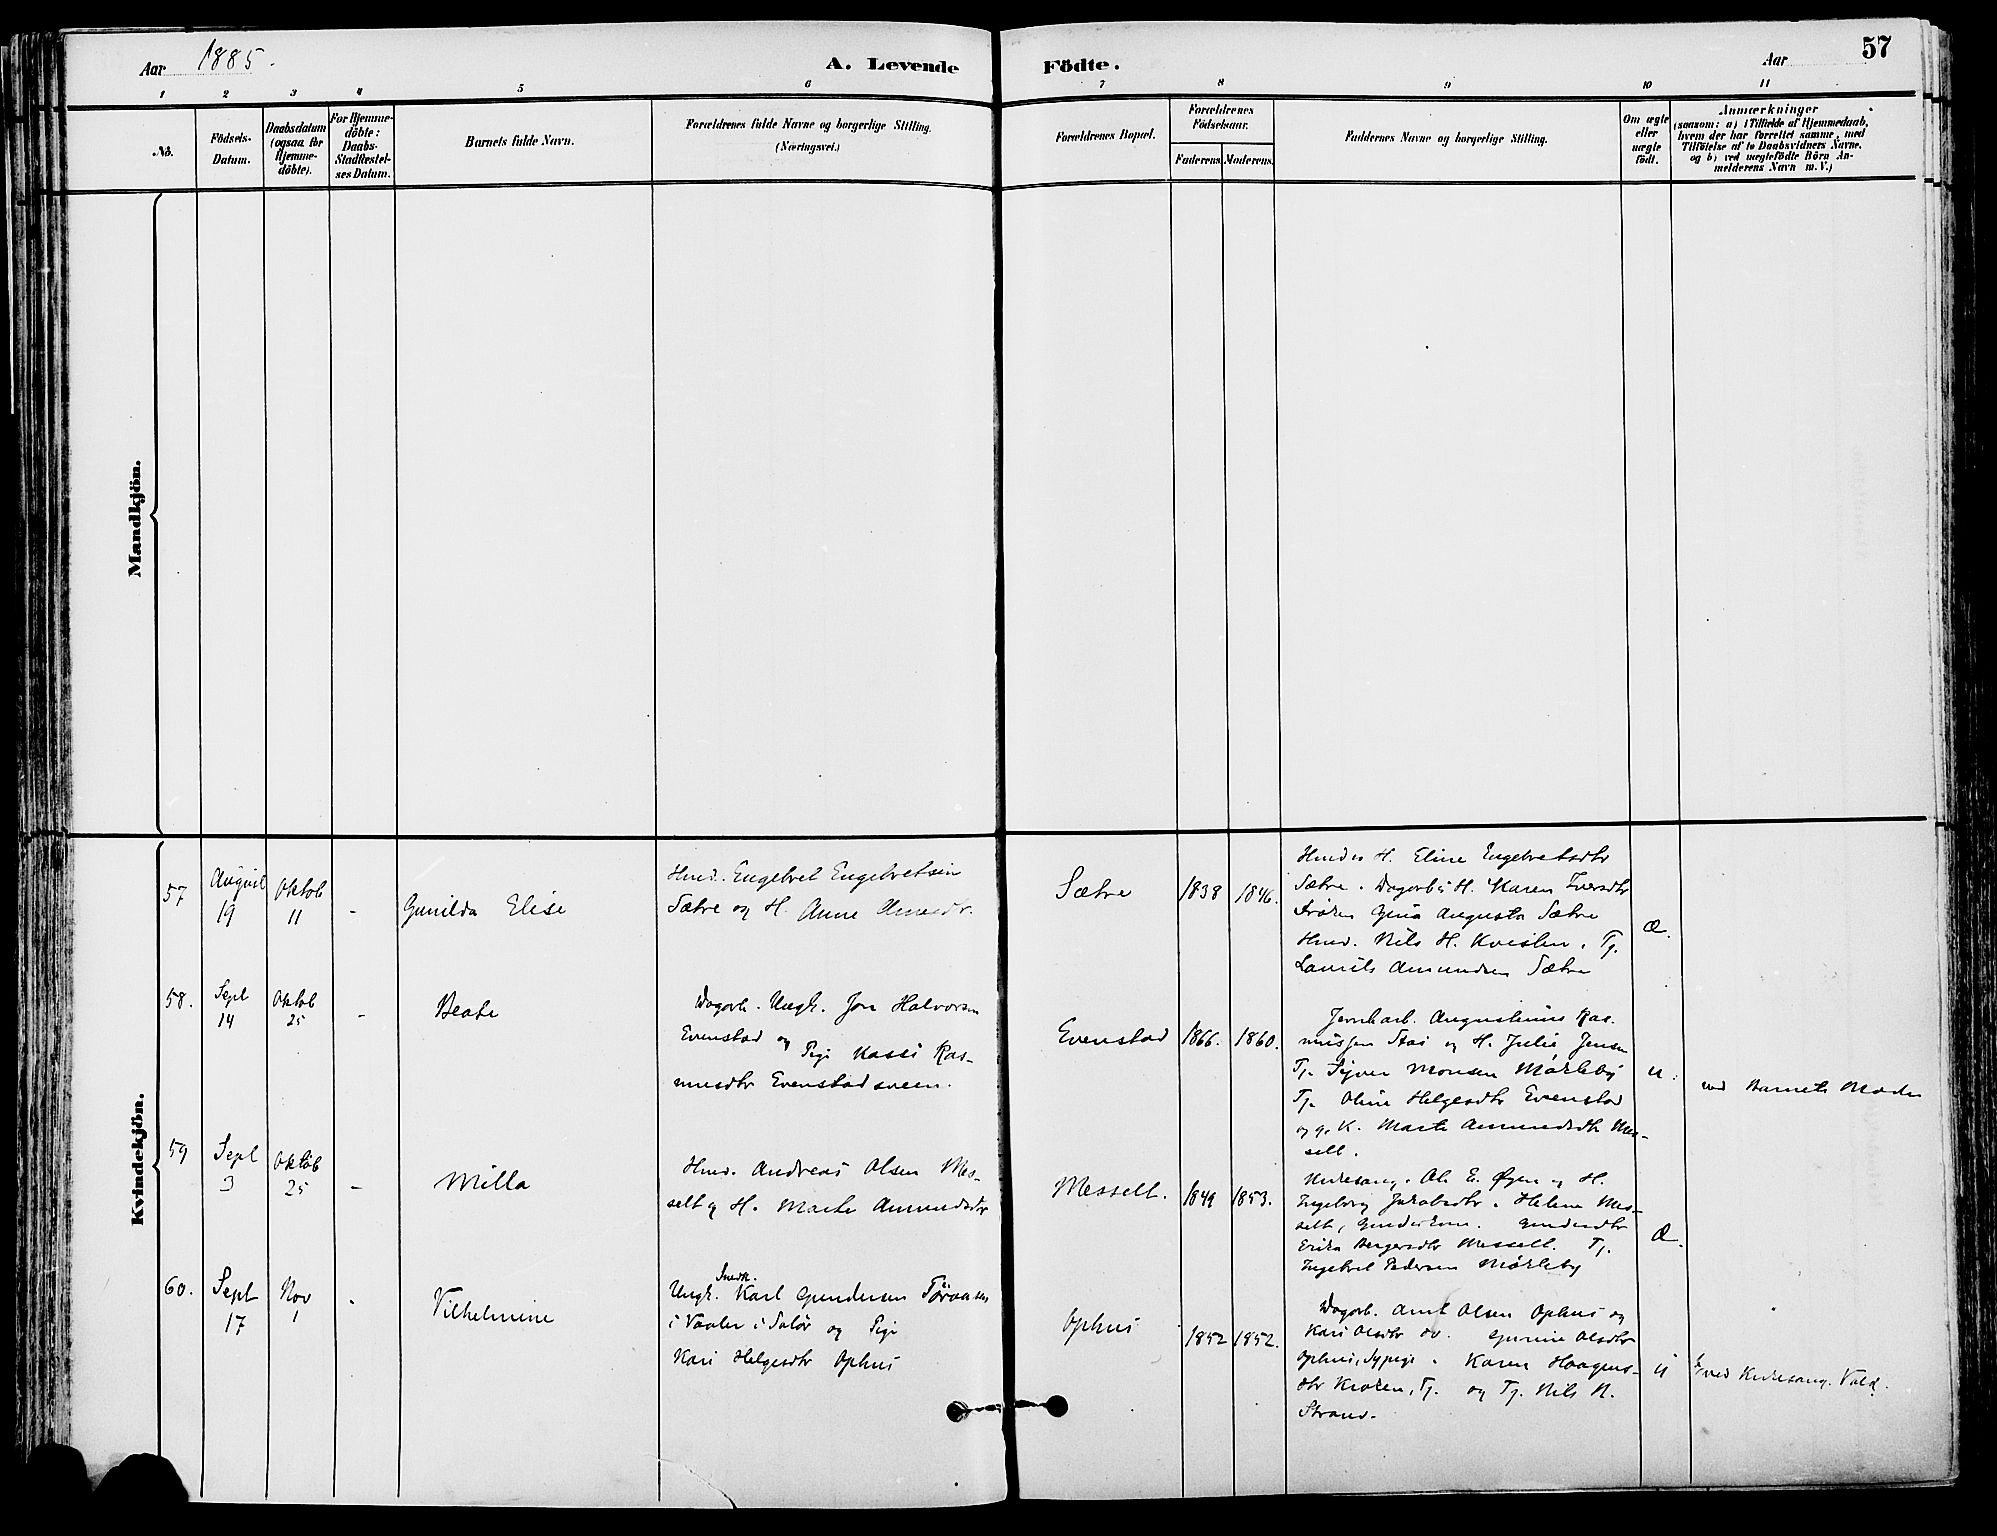 Aar 1885.
A. Levende Födte.
Aar
57
1 2 3 4 5 6 7 8 9 10 11
No.
Födsels-
Datum.
Daabsdatum
(ogsaa for
Hjemme-
döbte).
For Hjemme-
döbte:
Daabs-
Stadfestel-
ses Datum.
Barnets fulde Navn.
Forældrenes fulde Navne og borgerlige Stilling.
(Næringsvei.)
Forældrenes Bopæl.
Forældrenes
Födselsaar.
Faderens. Moderens.
Faddernes Navne og borgerlige Stilling.
Om ægte
eller
uægte
födt.
Anmærkninger
(saasom: a) i Tilfælde af Hjemmedaab,
hvem der har forrettet samme, med
Tilföielse af to Daabsvidners Navne,
og b) ved uægtefödte Börn An-
melderens Navn m.V.)
Mandkjön.
Kvindekjön.
57
August
19
Oktob
11
-
Gunilda Elise
Hmd. Engebret Engebretsen
Sætre og H. Anne Amundr.
Sætre
1838
1846.
Hmdes H. Eline Engebretsdtr
Sætre. Dagarb's H. Karen Iversdtr
Frøken Gina Augusta Sætre
Hmd. Nils H. Kvislen. Tj.
Laurits Amundsen Sætre
Æ.
58.
Sept
14
Oktob
25
-
Beate
Dagarb. Ungk. Jon Halvorsen
Evenstad og
Pige Kassi Ras-
musdtr Evenstadsveen.
Evenstad
1866.
1860.
Jernbarb. Augustinus Ras-
mussen Stai og H. Julie Jensen
Tj. Sjver Monsen Møkleby
Tj. Oline Helgesdtr Evenstad
og g. K. Marte Amundsdtr Mes-
selt.
U.
ved Barnets Moder
59
Sept
3
Oktob
25
-
Milla
Hmd. Andreas Olsen Mes-
selt og H. Marte Amundsdtr
Messelt.
1849
1853.
Kirkesang. Ole E. Øyen og H.
Ingeborg Jakobsdtr. Helene Mes-
selt, Gmdes Kone. Gundersdtr
Erika Bergersdtr Messelt. Tj.
Ingebret Pedersen Møkleby
Æ.
60.
Sept
17
Nov
1
-
Vilhelmine
Smedk.
Ungk. Karl Gundersen
i Vaaler i Solør og Pige
Kari Helgesdtr Ophus
Ophus
1852
1852.
Dagarb. Arnt Olsen Ophus og
Kari Olsdtr do. Gurine Olsdtr
Ophus, Sypige. Karen Haagens-
dtr Kroken, Tj. og Tj. Nils N.
Strand.
U
ved Kirkesang. Vold.